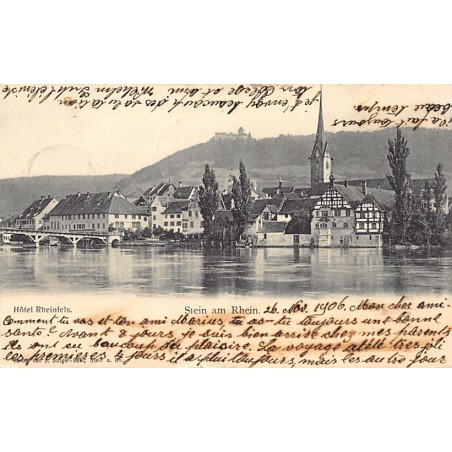 Hôtel Rheinfels.
Stein am Rhein. 26 Nov. 1906. Mon cher ami
Comment tu vas et ton ami Marius tu as toujours une bonne
santé? Avant 2 jours, je suis bien arrivé chez mes parents
ils ont eu beaucoup du plaisire. La voyage allé tres joli
les premieres 4 jours il a plui toujours, mais les autre jour
il a fait toujours beau temps
je t'envoy beaucoup des salutation
ton Collège et ami Wilhelm